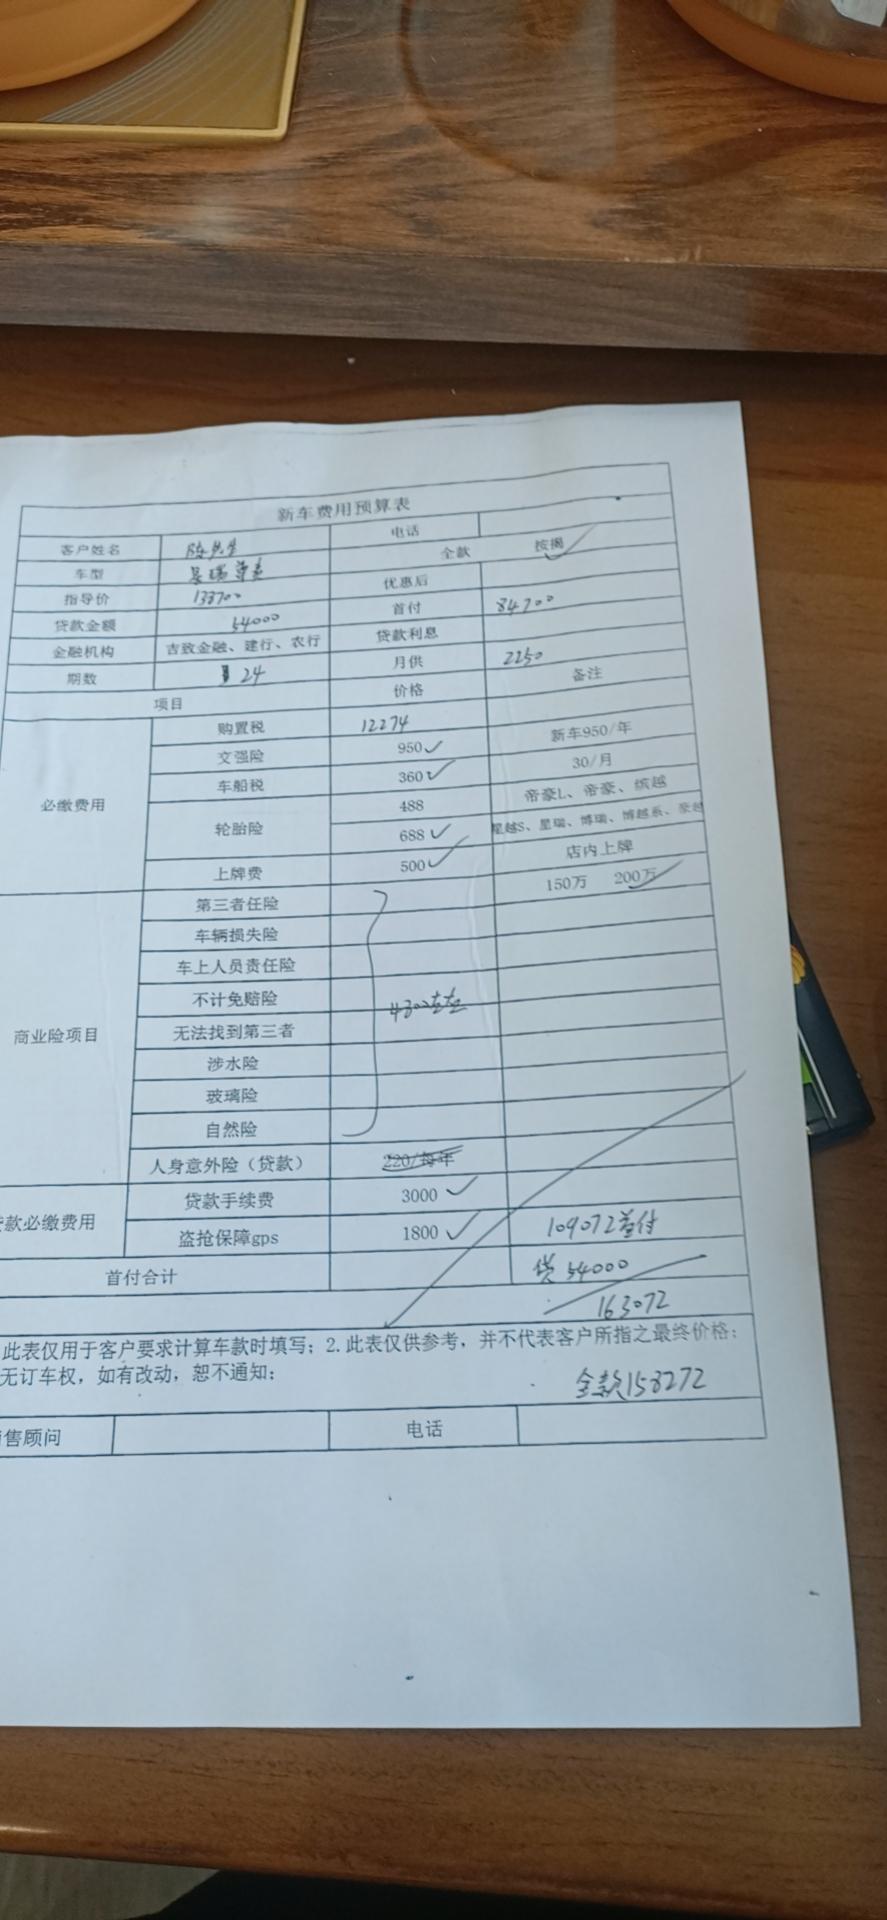 新车费用预算表
客户姓名 陈先生 电话
车型 星瑞尊贵 全款 按揭✓
指导价 138700 优惠后
贷款金额 54000 首付 84700
金融机构 吉致金融、建行、农行 贷款利息
期数 24 月供 2250
项目 价格 备注
必缴费用
购置税 12274
交强险 950✓ 新车950/年
车船税 360✓ 30/月
轮胎险 488 帝豪L、帝豪、缤越
688✓ 星越S、星瑞、博瑞、博越系、豪越
上牌费 500✓ 店内上牌
商业险项目
第三者任险 150万 200万✓
车辆损失险
车上人员责任险
不计免赔险 4300左右
无法找到第三者
涉水险
玻璃险
自然险
人身意外险（贷款） 220/每年
款必缴费用
贷款手续费 3000✓
盗抢保障gps 1800✓ 109072首付
首付合计 贷54000
163072
此表仅用于客户要求计算车款时填写；2.此表仅供参考，并不代表客户所指之最终价格；
无订车权，如有改动，恕不通知；
全款158272
售顾问 电话